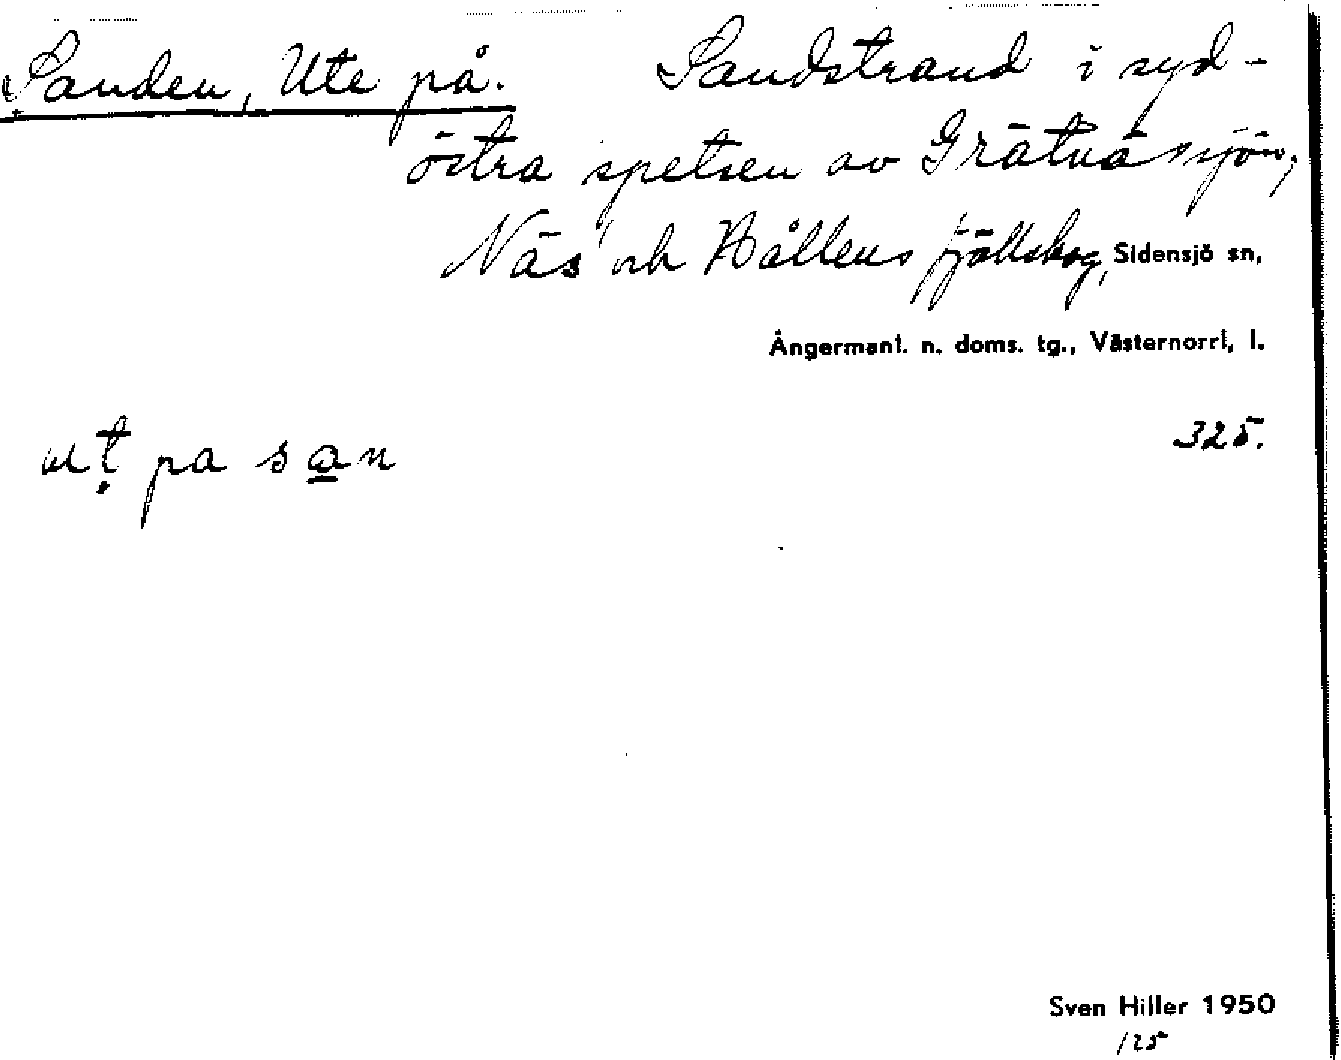 Sanden, Ute på. Sandstrand i syd-
östra spetsen av Grätnässjön,
Näs och Hållens fjällskog, Sidensjö sn,
Ångermanl. n. doms. tg., Västernorrl. l.
325.
ut̥ pa sa̲n
Sven Hiller 1950
125